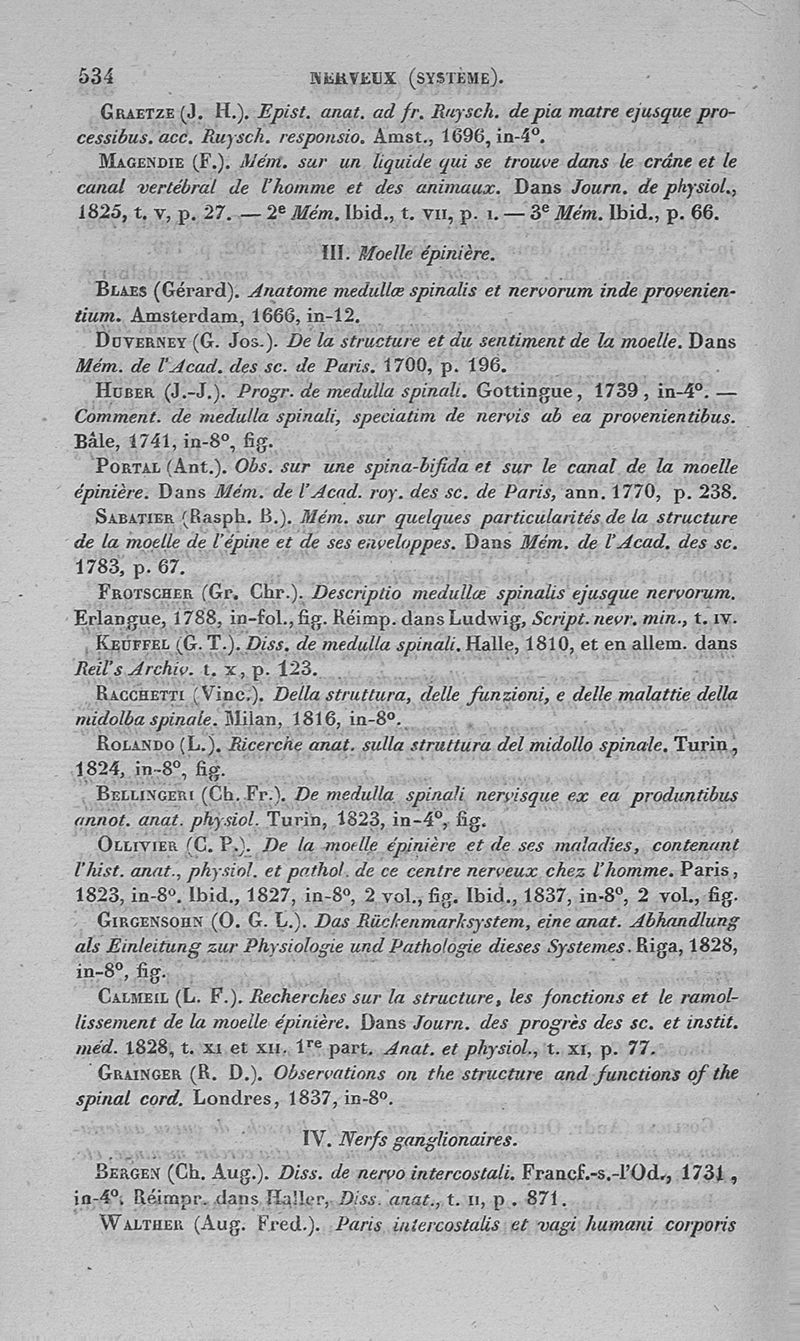 534 NERVEUX (SYSTÈME).
GRAETZE (J. H.). Epist. anat. ad fr. Ruysch. de pia matre ejusque pro-
cessibus. acc. Ruysch. responsio. Amst., 1696, in-4º.
MAGENDIE (F.). Mém. sur un liquide qui se trouve dans le crâne et le
canal vertébral de l'homme et des animaux. Dans Journ. de physiol.,
1825, t. V, p. 27. — 2e Mém. Ibid., t. VII, p. I. — 3e Mém. Ibid., p. 66.
III. Moelle épinière.
BLAES (Gérard). Anatome medullæ spinalis et nervorum inde provenien-
tium. Amsterdam, 1666, in-12.
DUVERNEY (G. Jos.). De la structure et du sentiment de la moelle. Dans
Mém. de l'Acad. des sc. de Paris. 1700, p. 196.
HUBER (J.-J.). Progr. de medulla spinali. Gottingue, 1739, in-4º. —
Comment. de medulla spinali, speciatim de nervis ab ea provenientibus.
Bâle, 1741, in-8º, fig.
PORTAL (Ant.). Obs. sur une spina-bifida et sur le canal de la moelle
épinière. Dans Mém. de l'Acad. roy. des sc. de Paris, ann. 1770, p. 238.
SABATIER (Rasph. B.). Mém. sur quelques particularités de la structure
de la moelle de l'épine et de ses enveloppes. Dans Mém. de l'Acad. des sc.
1783, p. 67.
FROTSCHER (Gr. Chr.). Descriptio medullæ spinalis ejusque nervorum.
Erlangue, 1788, in-fol., fig. Réimp. dans Ludwig, Script. nevr. min., t. IV.
KEUFFEL (G. T.). Diss. de medulla spinali. Halle, 1810, et en allem. dans
Reil's Archiv. t. X, p. 123.
RACCHETTI (Vinc.). Della struttura, delle funzioni, e delle malattie della
midolba spinale. Milan, 1816, in-8º.
ROLANDO (L.). Ricerche anat. sulla struttura del midollo spinale. Turin,
1824, in-8º, fig.
BELLINGERI (Ch. Fr.). De medulla spinali nervisque ex ea produntibus
annot. anat. physiol. Turin, 1823, in-4º, fig.
OLLIVIER (C. P.). De la moelle épinière et de ses maladies, contenant
l'hist. anat., physiol. et pathol. de ce centre nerveux chez l'homme. Paris,
1823, in-8º. Ibid., 1827, in-8º, 2 vol., fig. Ibid., 1837, in-8º, 2 vol., fig.
GIRGENSOHN (O. G. L.). Das Rückenmarksystem, eine anat. Abhandlung
als Einleitung zur Physiologie und Pathologie dieses Systemes. Riga, 1828,
in-8º, fig.
CALMEIL (L. F.). Recherches sur la structure, les fonctions et le ramol-
lissement de la moelle épinière. Dans Journ. des progrès des sc. et instit.
méd. 1828, t. XI et XII. 1re part. Anat. et physiol., t. XI, p. 77.
GRAINGER (R. D.). Observations on the structure and functions of the
spinal cord. Londres, 1837, in-8º.
IV. Nerfs ganglionaires.
BERGEN (Ch. Aug.). Diss. de nervo intercostali. Francf.-s.-l'Od., 1731,
in-4º. Réimpr. dans Haller, Diss. anat., t. II, p. 871.
WALTHER (Aug. Fred.). Paris intercostalis et vagi humani corporis